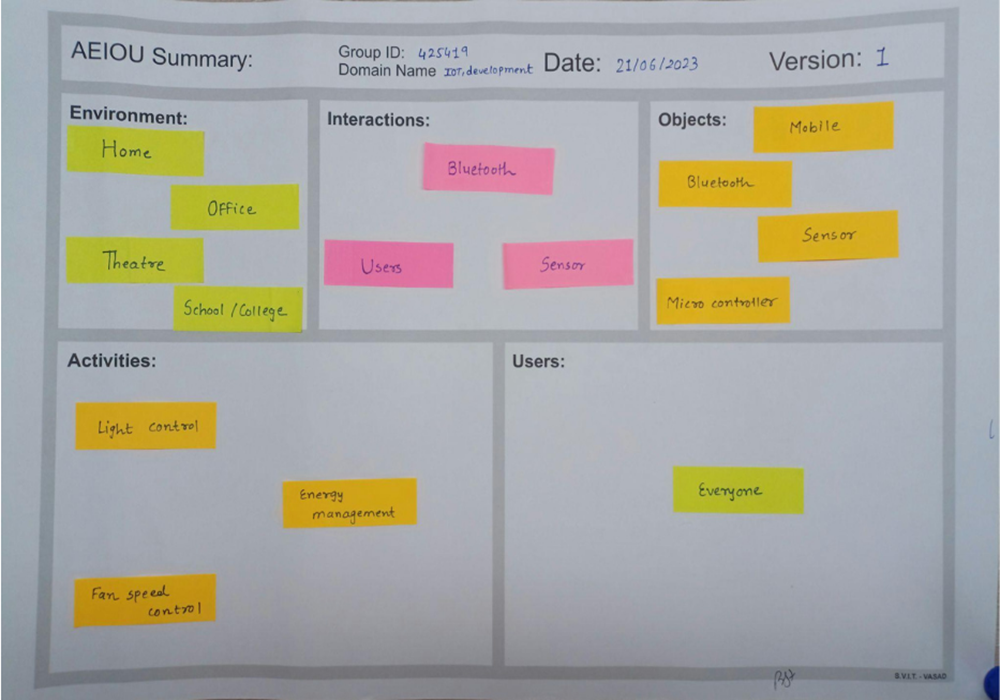 AEIOU Summary:
Group ID: 425419
Domain Name IOT, development
Date: 21/06/2023
Version: 1
Environment:
Home
Office
Theatre
School / College
Interactions:
Bluetooth
Users
Sensor
Objects:
Mobile
Bluetooth
Sensor
Micro controller
Activities:
Light control
Energy
management
Fan speed
control
Users:
Everyone
B.V.I.T. - VASAD